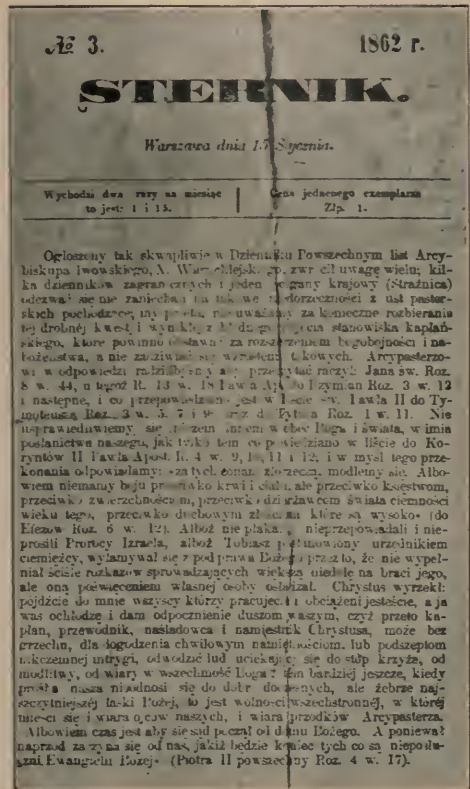 № 3. 1862 r.
STERNIK.
Warszawa dnia Stycznia.
Wychodzi dwa razy na miesiąc
to jest: 1 i 15.
Cena jednego exemplarza
Złp. 1.
Ogłoszony tak skwapliwie w Dzienniku Powszechnym list Arcy-
biskupa lwowskiego, uwagę wielu; kil-
ka dzienników zagranicznych i jeden krajowy (Strażnica)
odezwał się nie z usł paster-
skich pochodzące, my nieuważamy za konieczne rozbierania
tej drobnej stanowiska kapłań-
skiego, które powinno za rozszerzeniem bogobojności i na-
bożeństwa, a nie takowych. Arcypasterzo-
wi w odpowiedzi radzilibyśmy aby przeczytać raczył: Jana św. Roz.
8 w. 44, u tegoż R. 13 w. 18 Rzymian Roz. 3 w. 12
i następne, i co jest w Pawła II do Ty-
moteusza Roz. 3 w. 5. 7 i 9 Roz. 1 w. 11. Nie
usprawiedliwiemy się Boga i świata, w imię
posłanictwa naszego, jak tylko tem co powiedziano w liście do Ko-
ryntów II Pawła Apost. R. 4 w. 9, 10, 11 i 12, i w myśl tego prze-
konania odpowiadamy: za tych modlemy się. Albo-
wiem niemamy boju przeciwko krwi i ciału, ale przeciwko księstwom,
przeciwko zwierzchnościom, przeciwko dzierżawcom świata ciemności
wieku tego, przeciwko duchowym które są wysoko» (do
Efezów Roz. 6 w. 12). Alboż nie płakali, nieprzepowiadali i nie-
prosili Prorocy Izraela, alboż Tobiasz urzędnikiem
ciemięzcy, wyłamywał się z pod prawa Bożego przez to, że nie wypeł-
niał ściśle rozkazów sprowadzających większą niedolę na braci jego,
ale oną poświęceniem własnej osoby osładzał. Chrystus wyrzekł:
pójdźcie do mnie wszyscy którzy pracujecie i obciążeni jesteście, a ja
was ochłodzę i dam odpocznienie duszom waszym, czyż przeto ka-
płan, przewodnik, naśladowca i namiestnik Chrystusa, może bez
grzechu, dla dogodzenia chwilowym namiętnościom, lub podszeptom
nikczemnej intrygi, odwodzić lud uciekający się do stóp krzyża, od
modlitwy, od wiary w wszechmoc Boga? tem bardziej jeszcze, kiedy
prośba nasza nieodnosi się do dóbr doczesnych, ale żebrze naj-
szczytniejszej łaski Bożej, to jest wolności wszechstronnej, w której
mieści się i wiara ojców naszych, i wiara przodków Arcypasterza.
Albowiem czas jest aby się sąd począł od domu Bożego. A ponieważ
naprzód zaczyna się od nas, jakiż będzie koniec tych co są nieposłu-
szni Ewangelii Bożej» (Piotra II powszechny Roz. 4 w. 17).